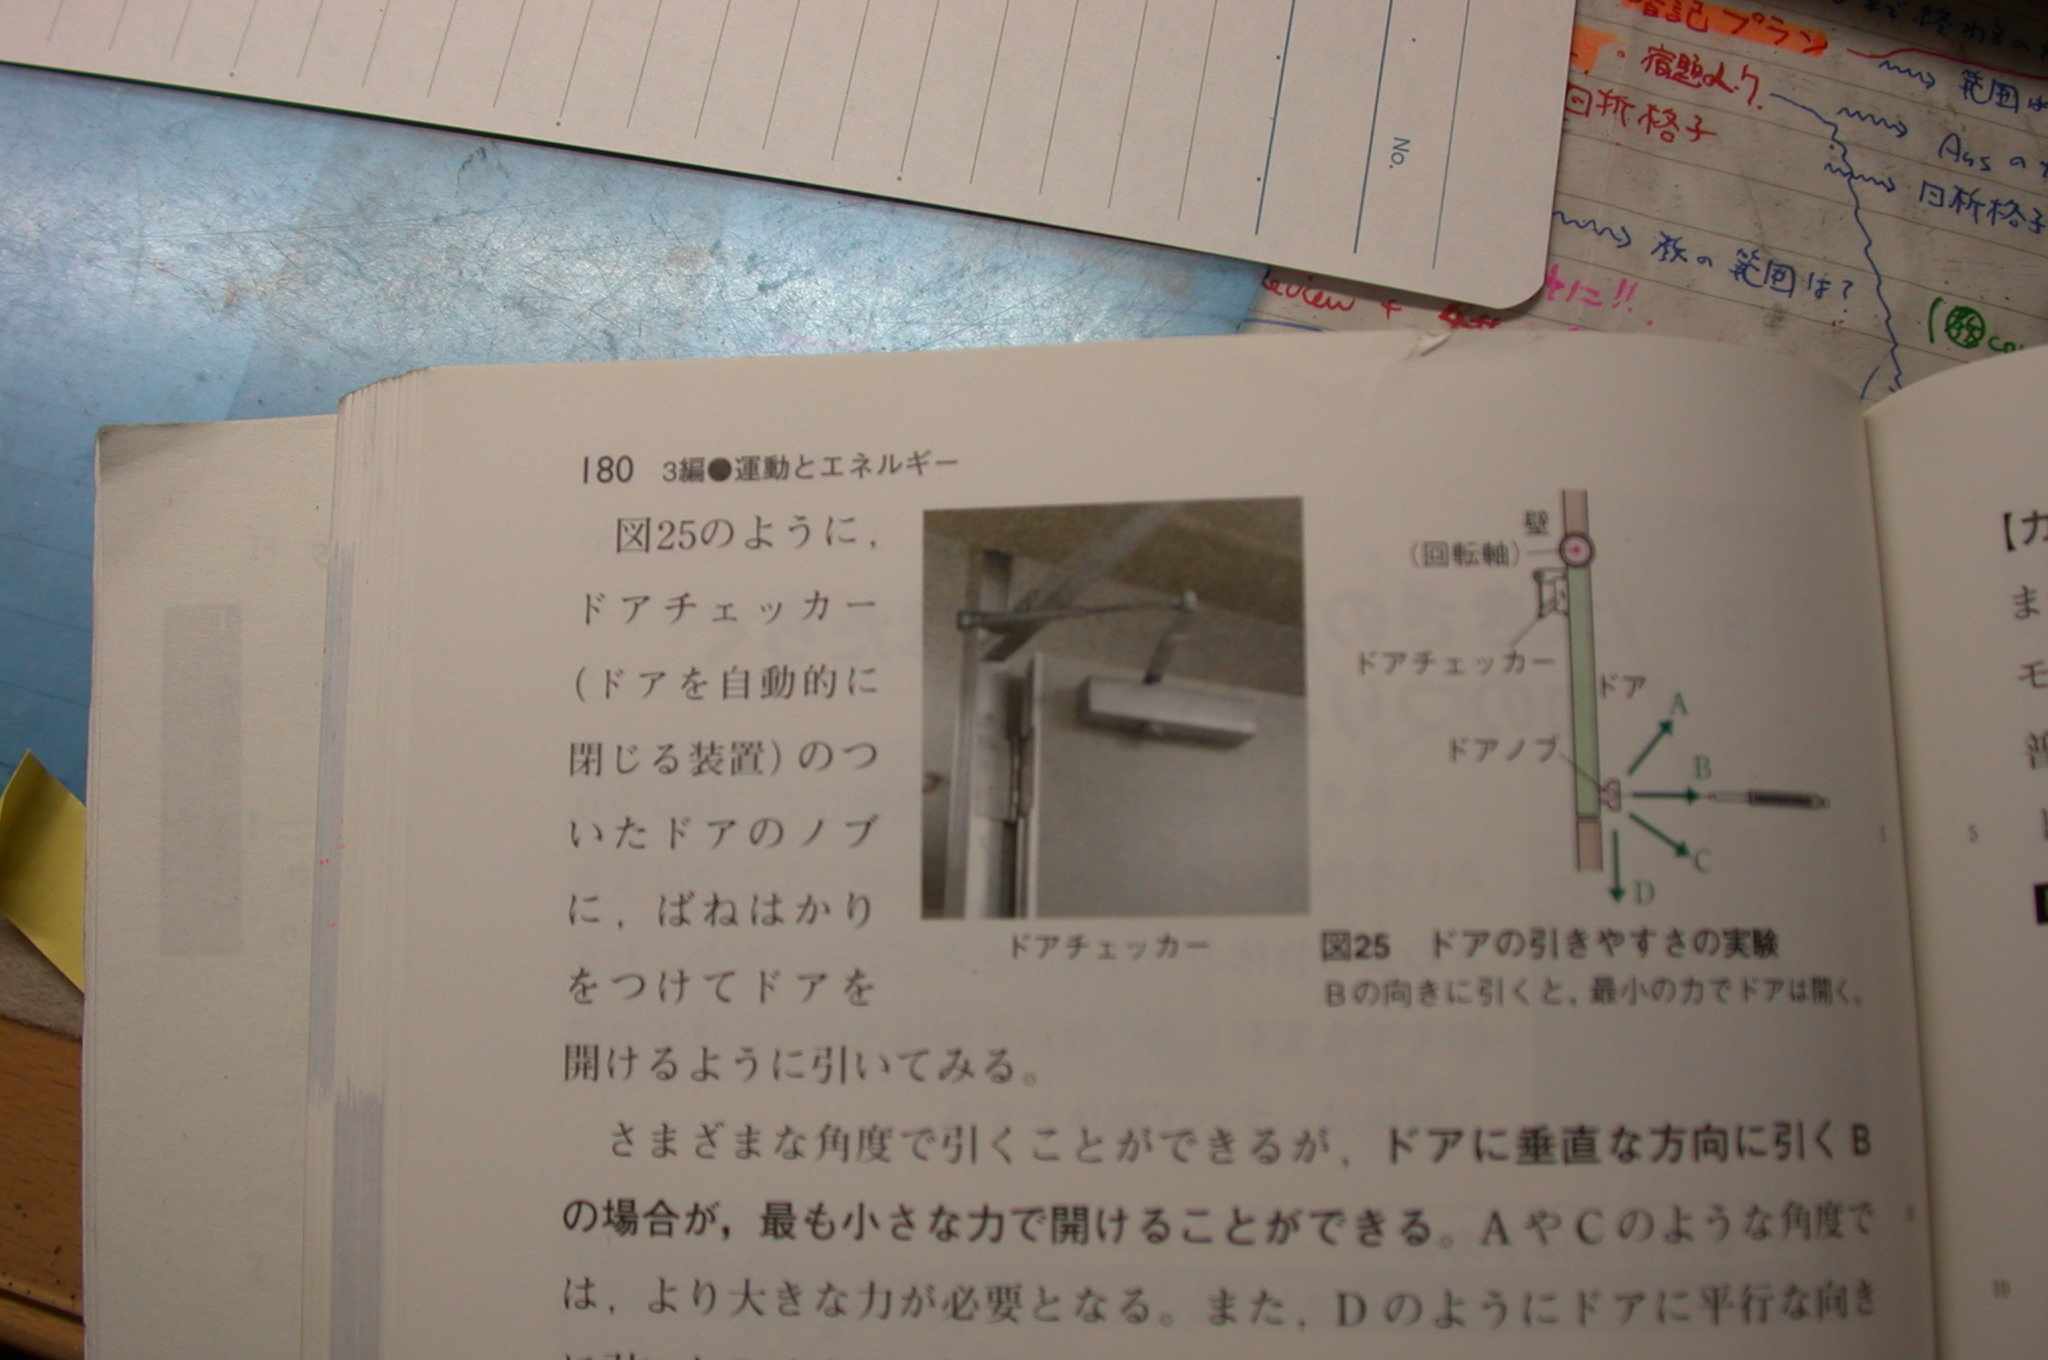 No.
暗記プラン
・宿題より
回折格子
範囲は
Ans の
回折格子
族の範囲は?
180 3編●運動とエネルギー
図25のように,
ドアチェッカー
(ドアを自動的に
閉じる装置)のつ
いたドアのノブ
に,ばねはかり
をつけてドアを
開けるように引いてみる。
ドアチェッカー
壁
(回転軸)
ドアチェッカー
ドア
ドアノブ
A
B
C
D
図25 ドアの引きやすさの実験
Bの向きに引くと,最小の力でドアは開く。
さまざまな角度で引くことができるが,ドアに垂直な方向に引くB
の場合が,最も小さな力で開けることができる。AやCのような角度で
は,より大きな力が必要となる。また,Dのようにドアに平行な向き
【力
ま
モ
普
5
10